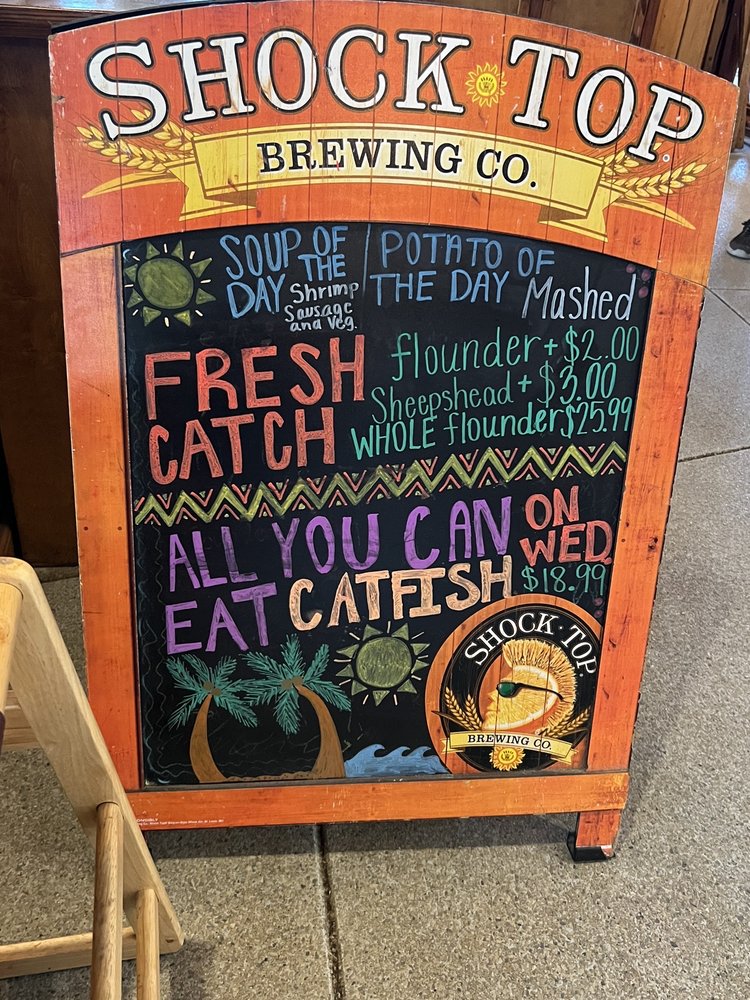 SHOCK TOP
BREWING CO.
SOUP OF
THE
DAY Shrimp
Sausage
and Veg.
POTATO OF
THE DAY Mashed
FRESH
CATCH
flounder + $2.00
Sheepshead + $3.00
WHOLE flounder $25.99
ALL YOU CAN
EAT CATFISH
ON
WED.
$18.99
SHOCK·TOP
BREWING CO.